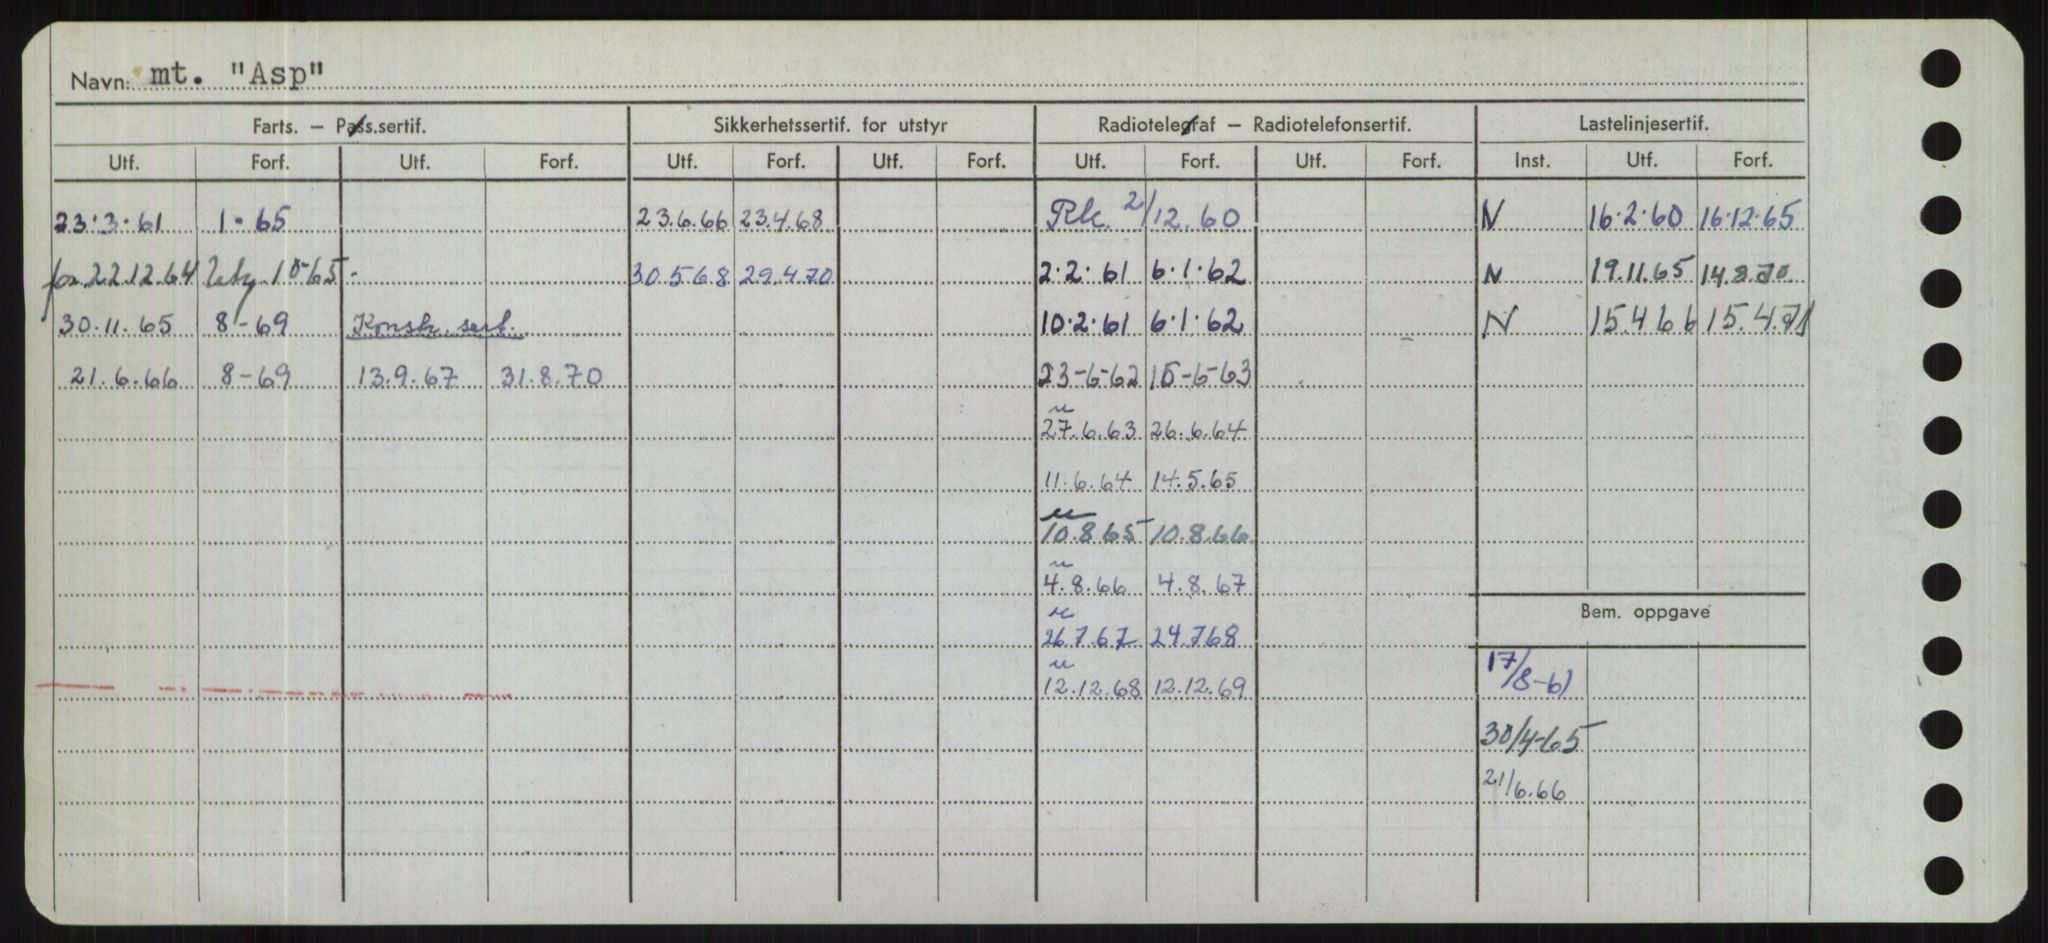 Navn: mt. "Asp"
Farts. – Pass.sertif. Sikkerhetssertif. for utstyr Radiotelegraf – Radiotelefonsertif. Lastelinjesertif.
Utf. Forf. Utf. Forf. Utf. Forf. Utf. Forf. Utf. Forf. Utf. Forf. Inst. Utf. Forf.
23.3.61 1.65 23.6.66 23.4.68 Rk. 2/12.60 N 16.2.60 16.12.65
22.12.64 10-65 30.5.68 29.4.70 2.2.61 6.1.62 N 19.11.65 14.8.70
30.11.65 8-69 Konstr. sert. 10.2.61 6.1.62 N 15.4.66 15.4.71
21.6.66 8-69 13.9.67 31.8.70 23-6-62 15-6-63
u
27.6.63 26.6.64
11.6.64 14.5.65
u
10.8.65 10.8.66
u
4.8.66 4.8.67
u
Bem. oppgave
26.7.67 24.7.68
u
12.12.68 12.12.69 17/8-61
30/4-65
21/6.66